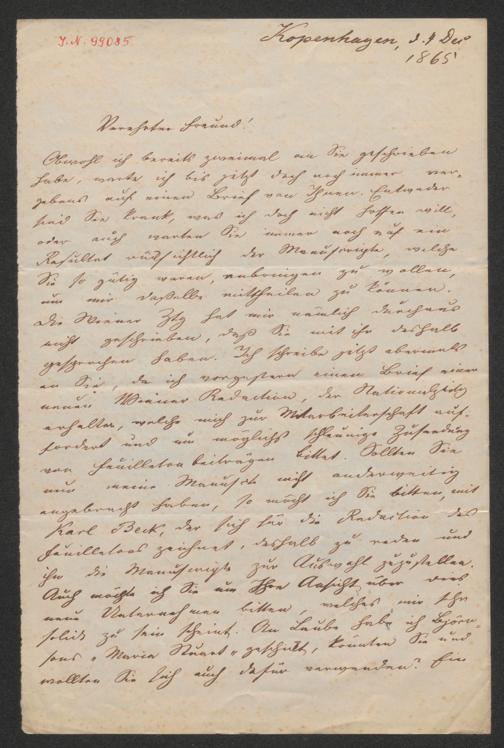 J. N. 99085
Kopenhagen, d. 9 Dec
1865
Verehrter Freund!
Obwohl ich bereits zweimal an Sie geschrieben
habe, warte ich bis jetzt doch noch immer ver-
gebens auf einen Brief von Ihnen. Entweder
sind Sie krank, was ich doch nicht hoffen will,
oder auch warten Sie immer noch auf ein
Resultat rücksichtlich der Manuscripte, welche
Sie so gütig waren, anbringen zu wollen,
um mir dasselbe mittheilen zu können.
Die Wiener Ztg hat mir nämlich durchaus
nicht geschrieben, daß Sie mit ihr deshalb
gesprochen haben. Ich schreibe jetzt abermals
an Sie, da ich vorgestern einen Brief einer
neuen Wiener Redaction, der Nationalztg
erhalten, welche mich zur Mitarbeiterschaft auf-
fordert und um möglichst schleunige Zusendung
von Feuilletonbeiträgen bittet. Sollten Sie
nun meine Manuscr nicht anderweitig
angebracht haben, so möcht ich Sie bitten, mit
Karl Beck, der sich für die Redaction des
Feuilletons zeichnet, deshalb zu reden und
ihm die Manuscripte zur Auswahl zuzustellen.
Auch möchte ich Sie um Ihre Ansicht über dies
neue Unternehmen bitten, welches mir sehr
solid zu sein scheint. An Laube habe ich Björn-
sons „Maria Stuart" geschickt, könnten Sie und
wollten Sie sich auch dafür verwenden? Ein